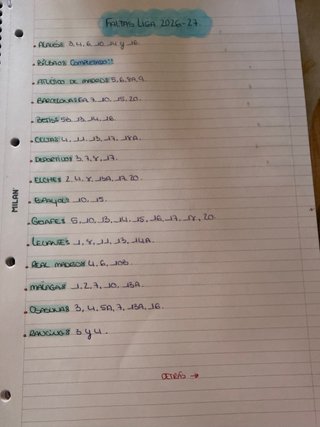 FALTAS LIGA 2026-27.
• ALAVÉS: 3, 4, 6, 10, 14 y 16.
• BILBAO: COMPLETADO!!
• ATLÉTICO DE MADRID: 5, 6, 8A, 9.
• BARCELONA: 6A, 7, 10, 15, 20.
• BETIS: 5B, 13, 14, 18.
• CELTA: 4, 11, 13, 17, 18A.
• DEPORTIVO: 3, 7, 8, 17.
• ELCHE: 2, 4, 8, 13A, 17, 20.
• ESPANYOL: 10, 15.
• GETAFE: 5, 10, 13, 14, 15, 16, 17, 18, 20.
• LEVANTE: 1, 8, 11, 13, 14A.
• REAL MADRID: 4, 6, 10B.
• MÁLAGA: 1, 2, 7, 10, 13A.
• OSASUNA: 3, 4, 5A, 7, 13A, 16.
• RACING: 3 y 4.
DETRÁS →
MILAN